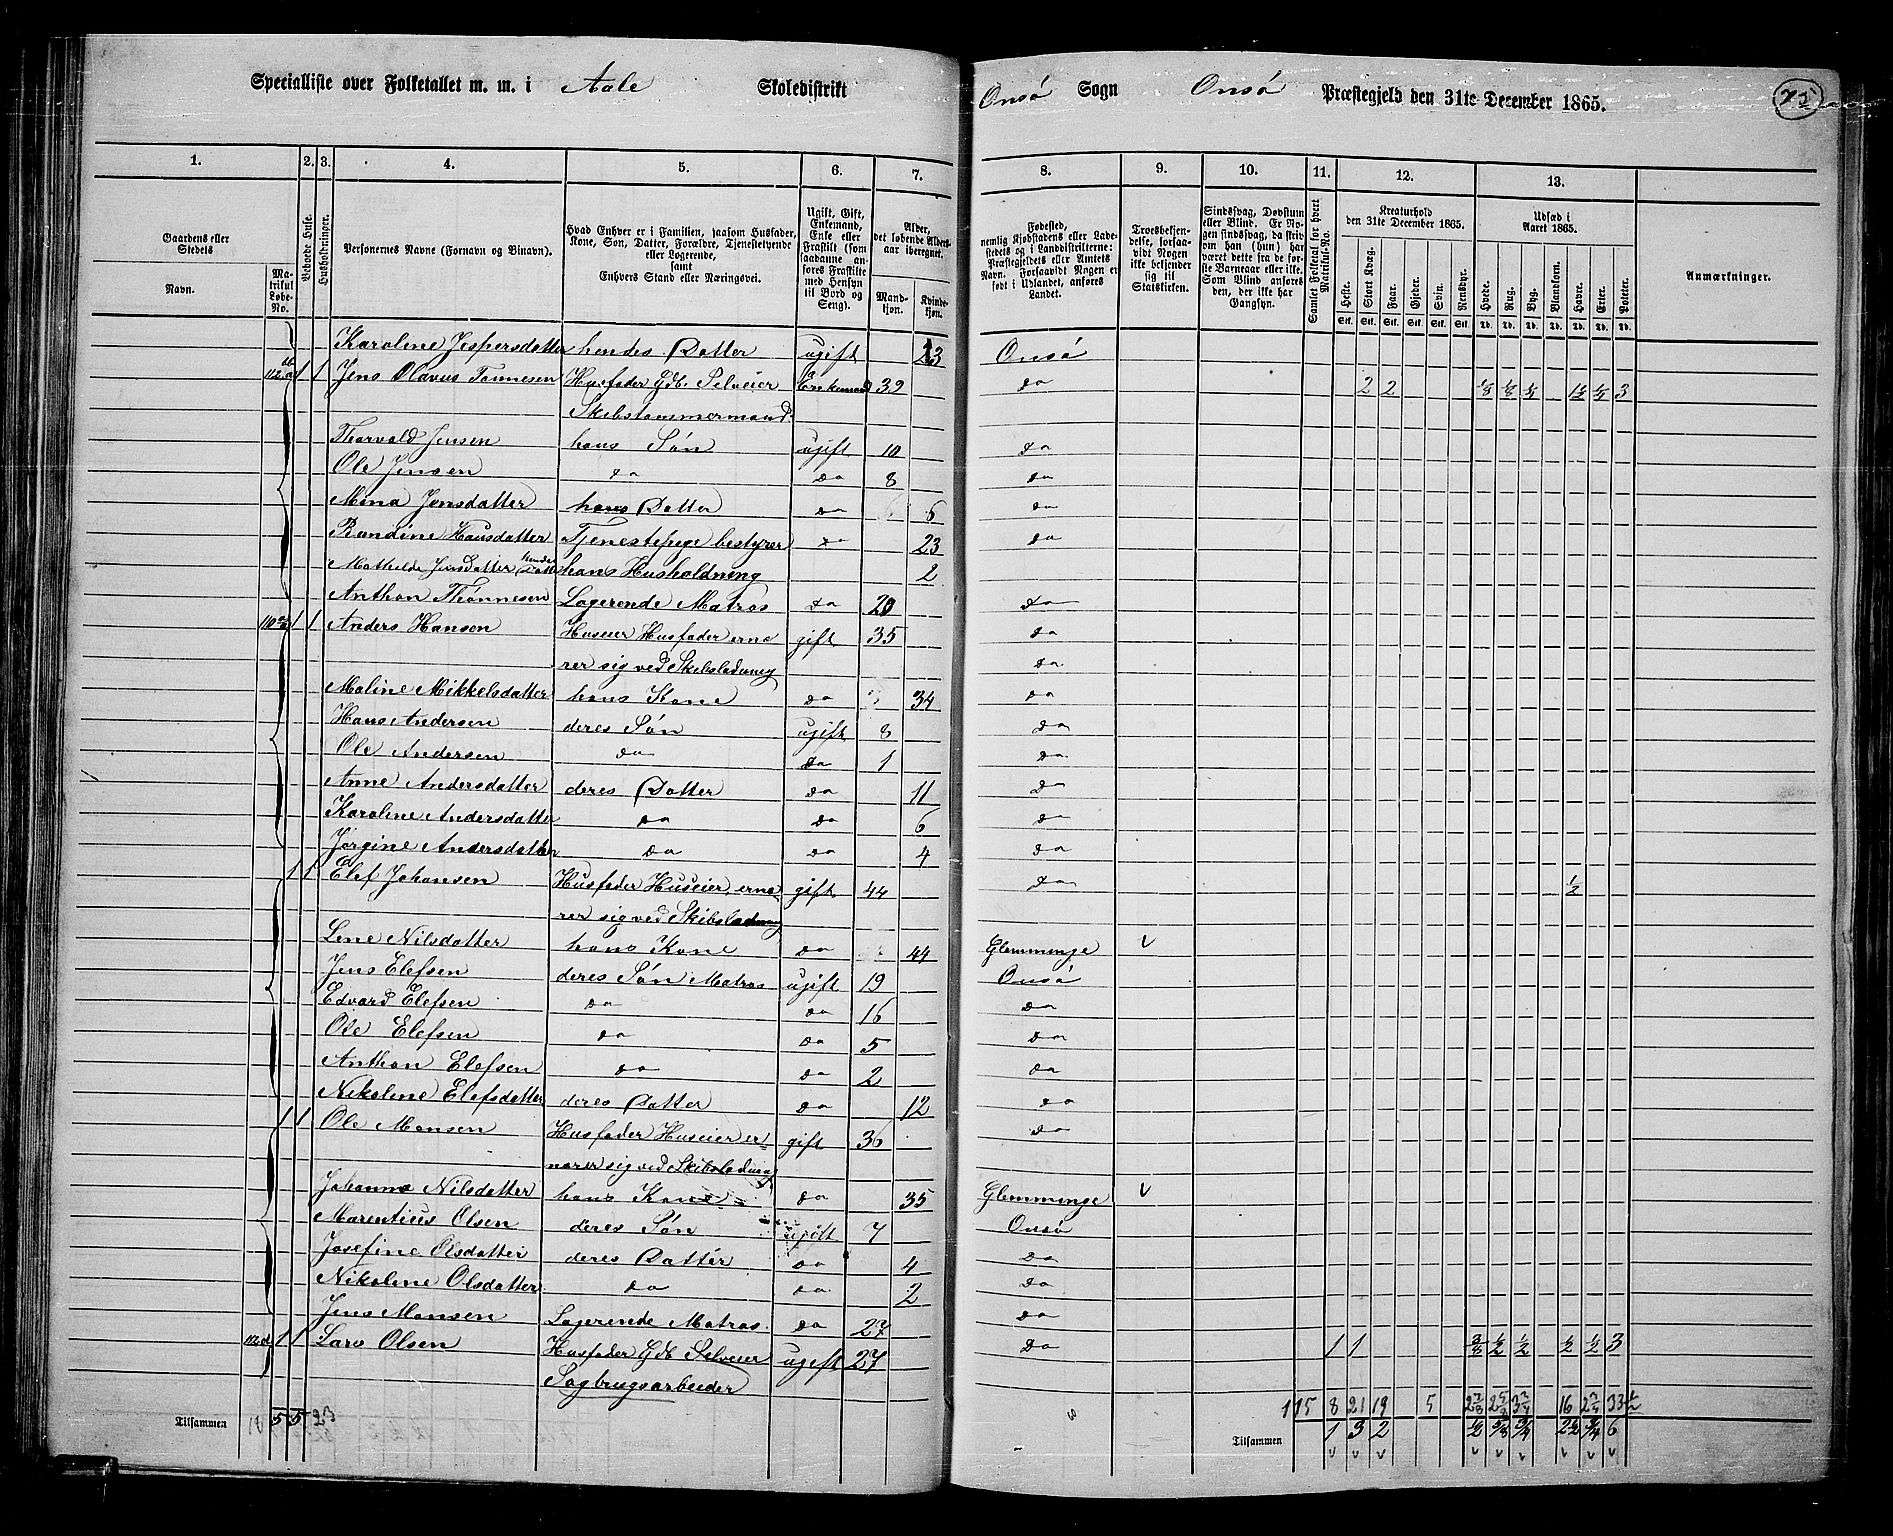 Specialliste over Folketallet m. m. i Aale Skoledistrikt Onsö Sogn Onsö Præstegjeld den 31te December 1865.
75
1. 2. 3. 4. 5. 6. 7. 8. 9. 10. 11. 12. 13.
Gaardens eller Stedets Navn.
Matrikul Løbe-No.
Beboede Huse.
Husholdninger.
Personernes Navne (Fornavn og Binavn).
Hvad Enhver er i Familien, saasom Husfader, Kone, Søn, Datter, Forældre, Tjenestetyende eller Logerende, samt Enhvers Stand eller Næringsvei.
Ugift, Gift, Enkemand, Enke eller Fraskilt (som saadanne anføres Fraskilte med Hensyn til Bord og Seng).
Alder, det løbende Aldersaar iberegnet.
Mandkjøn. Kvindekjøn.
Fødested, nemlig Kjøbstadens eller Ladestedets og i Landdistrikterne: Præstegjeldets eller Amtets Navn. Forsaavidt Nogen er født i Udlandet, anføres Landet.
Troesbekjendelse, forsaavidt Nogen ikke bekjender sig til Statskirken.
Sindssvag, Døvstum eller Blind. Er Nogen sindssvag, da skrives om han (hun) har været dette fra de første Barneaar eller ikke. Som Blind anføres den, der ikke har Gangsyn.
Samlet Folketal for hvert Matrikul-No.
Kreaturhold den 31te December 1865.
Heste. Stort Kvæg. Faar. Gjeder. Svin. Rensdyr.
Udsæd i Aaret 1865.
Hvede. Rug. Byg. Blandkorn. Havre. Erter. Poteter.
Anmærkninger.
Karoline Jespersdatter hendes Datter ugift 23 Onsö
112 1 1 Jens Olavus Tonnesen Husfader Gdb. Selveier Enkemand 39 do 2 2 1/8 1/8 1/4 1 1/2 1/4 3
Skibstømmermand
Thorvald Jensen hans Søn ugift 10 do
Ole Jensen do do 8 do
Mina Jensdatter hans Datter do 6 do
Randine Hansdatter Tjenestepige bestyrer do 23 do
Mathilde Jensdatter hendes Datter hans Husholdning 2
Anthon Thönnesen Logerende Matros do 20 do
110 1 1 Anders Hansen Huseier Husfader ernæ gift 35 do
rer sig ved Skibsladning do
Maline Mikkelsdatter hans Kone do 34 do
Hans Andersen deres Søn ugift 8 do
Ole Andersen do do 1 do
Anne Andersdatter deres Datter do 11 do
Karoline Andersdatter do do 6 do
Jörgine Andersdatter do do 4 do
1 1 Elef Johansen Husfader Huseier, ernæ gift 44 do 1/2
rer sig ved Skibsladning
Lene Nilsdatter hans Kone do 44 Glemminge v
Jens Elefsen deres Søn Matros ugift 19 Onsö
Edvard Elefsen do do 16 do
Ole Elefsen do do 5 do
Anthon Elefsen do do 2 do
Nikoline Elefsdatter deres Datter do 12 do
1 1 Ole Monsen Husfader Huseier er gift 36 do
nærer sig ved Skibsladning
Johanna Nilsdatter hans Kone do 35 Glemminge v
Marentius Olsen deres Søn ugift 7 Onsö
Josefine Olsdatter deres Datter do 4 do
Nikoline Olsdatter do do 2 do
Jens Monsen Logerende Matros do 27 do
112 1 1 Lars Olsen Husfader Gdb. Selveier ugift 27 do 1 1 3/8 1/2 1/2 1/2 1/2 3
Sagbrugsarbeider
115 8 21 19 5 16
Tilsammen 5 5 23 Tilsammen 1 3 2 1/2 5/8 3/4 2 1/2 3/4 6